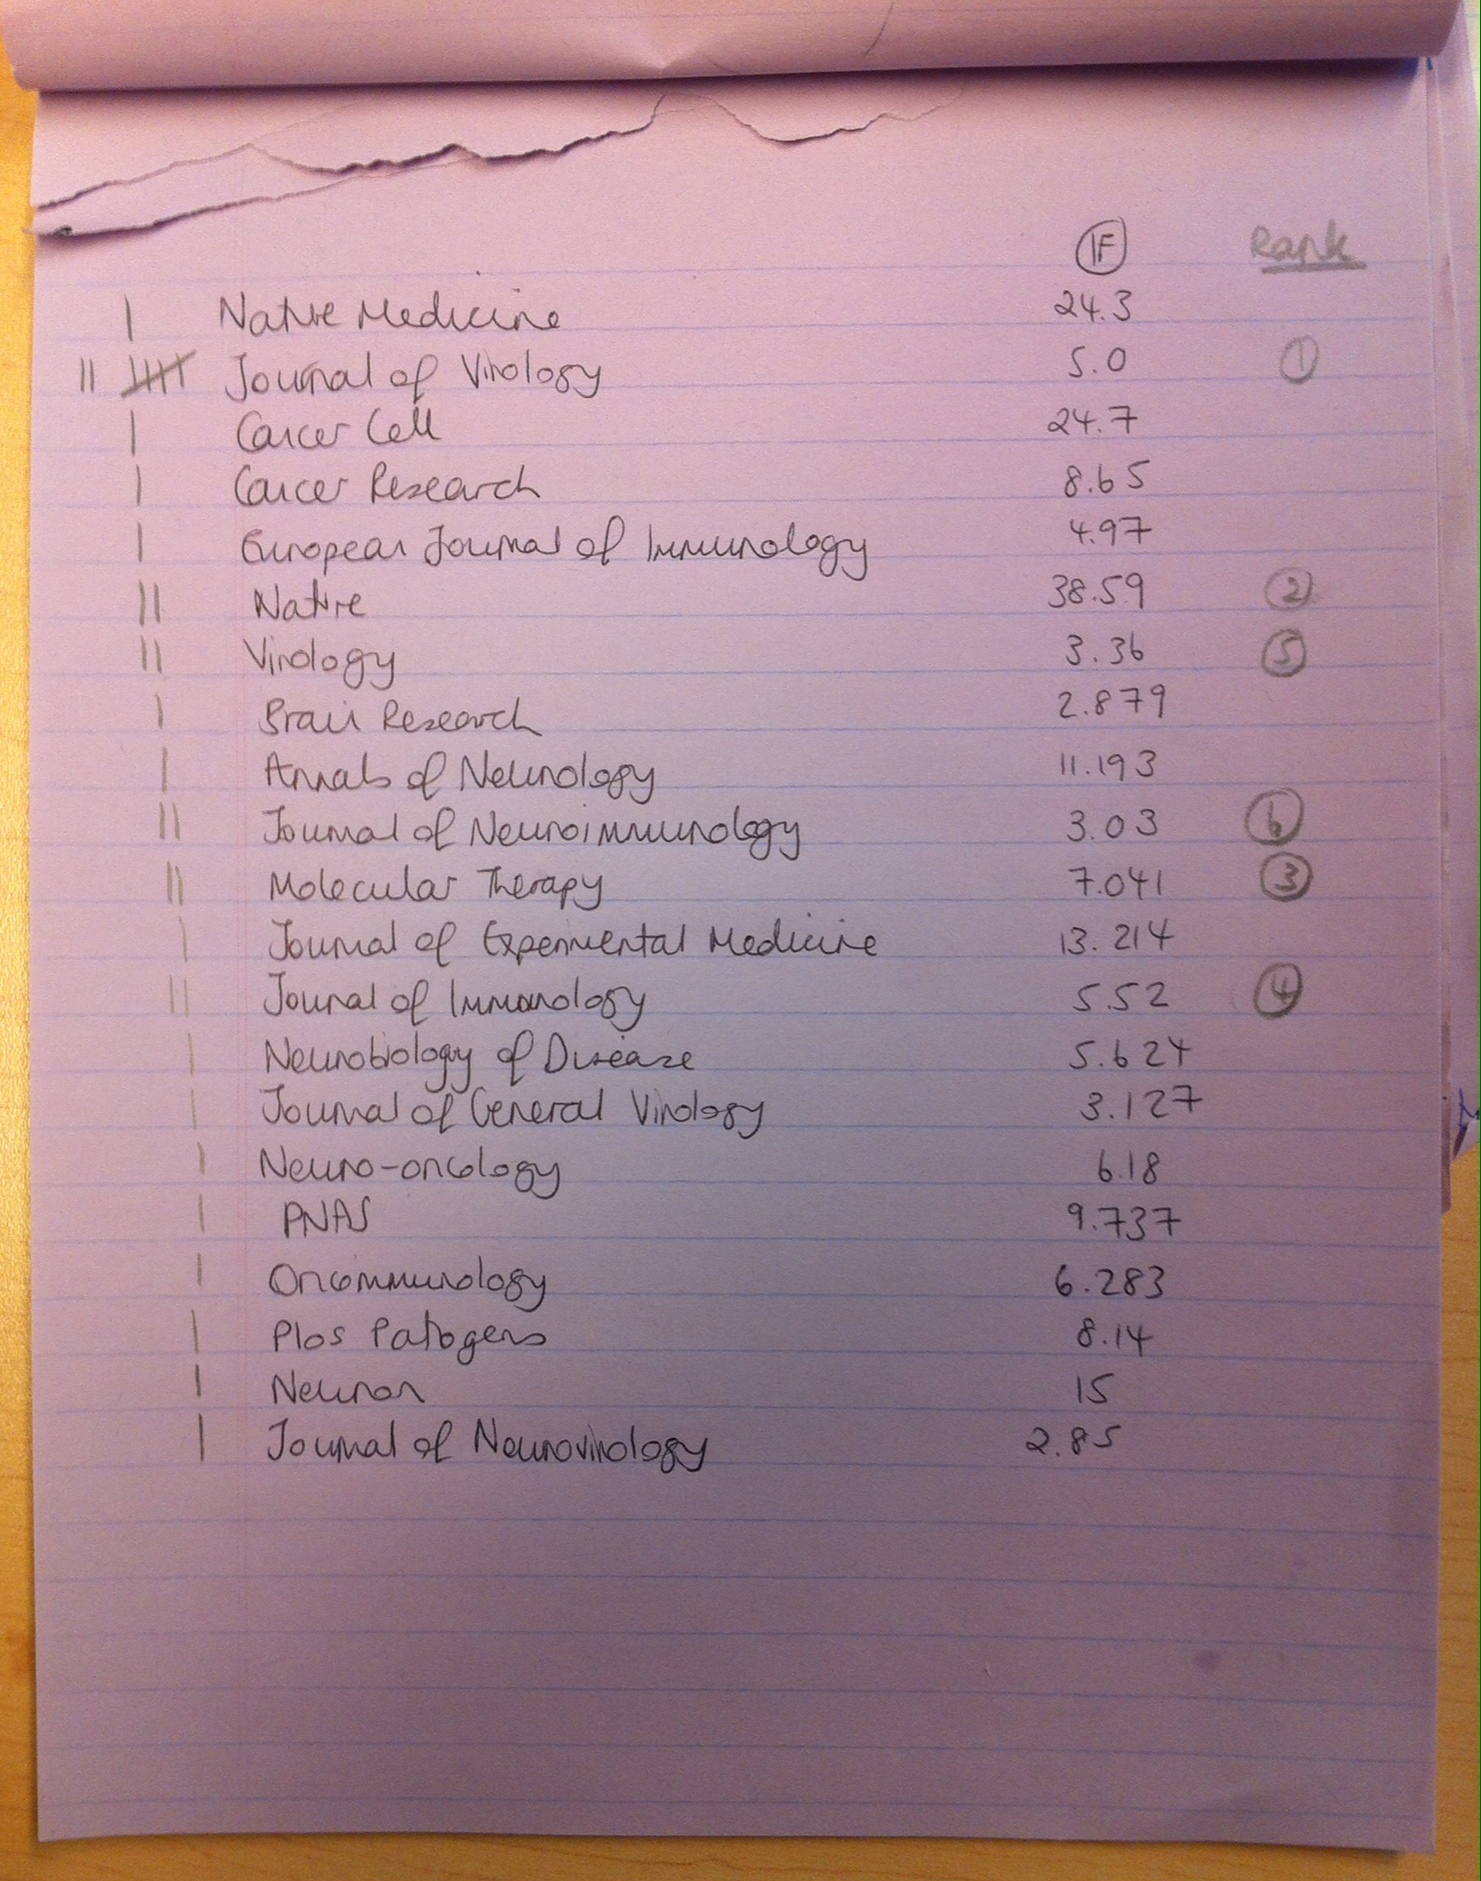 IF Rank
| Nature Medicine 24.3
|| 卌 Journal of Virology 5.0 1
| Cancer Cell 24.7
| Cancer Research 8.65
| European Journal of Immunology 4.97
|| Nature 38.59 2
|| Virology 3.36 5
| Brain Research 2.879
| Annals of Neurology 11.193
|| Journal of Neuroimmunology 3.03 6
|| Molecular Therapy 7.041 3
| Journal of Experimental Medicine 13.214
|| Journal of Immunology 5.52 4
| Neurobiology of Disease 5.624
| Journal of General Virology 3.127
| Neuro-oncology 6.18
| PNAS 9.737
| Oncommunology 6.283
| Plos Patogens 8.14
| Neuron 15
| Journal of Neurovirology 2.85